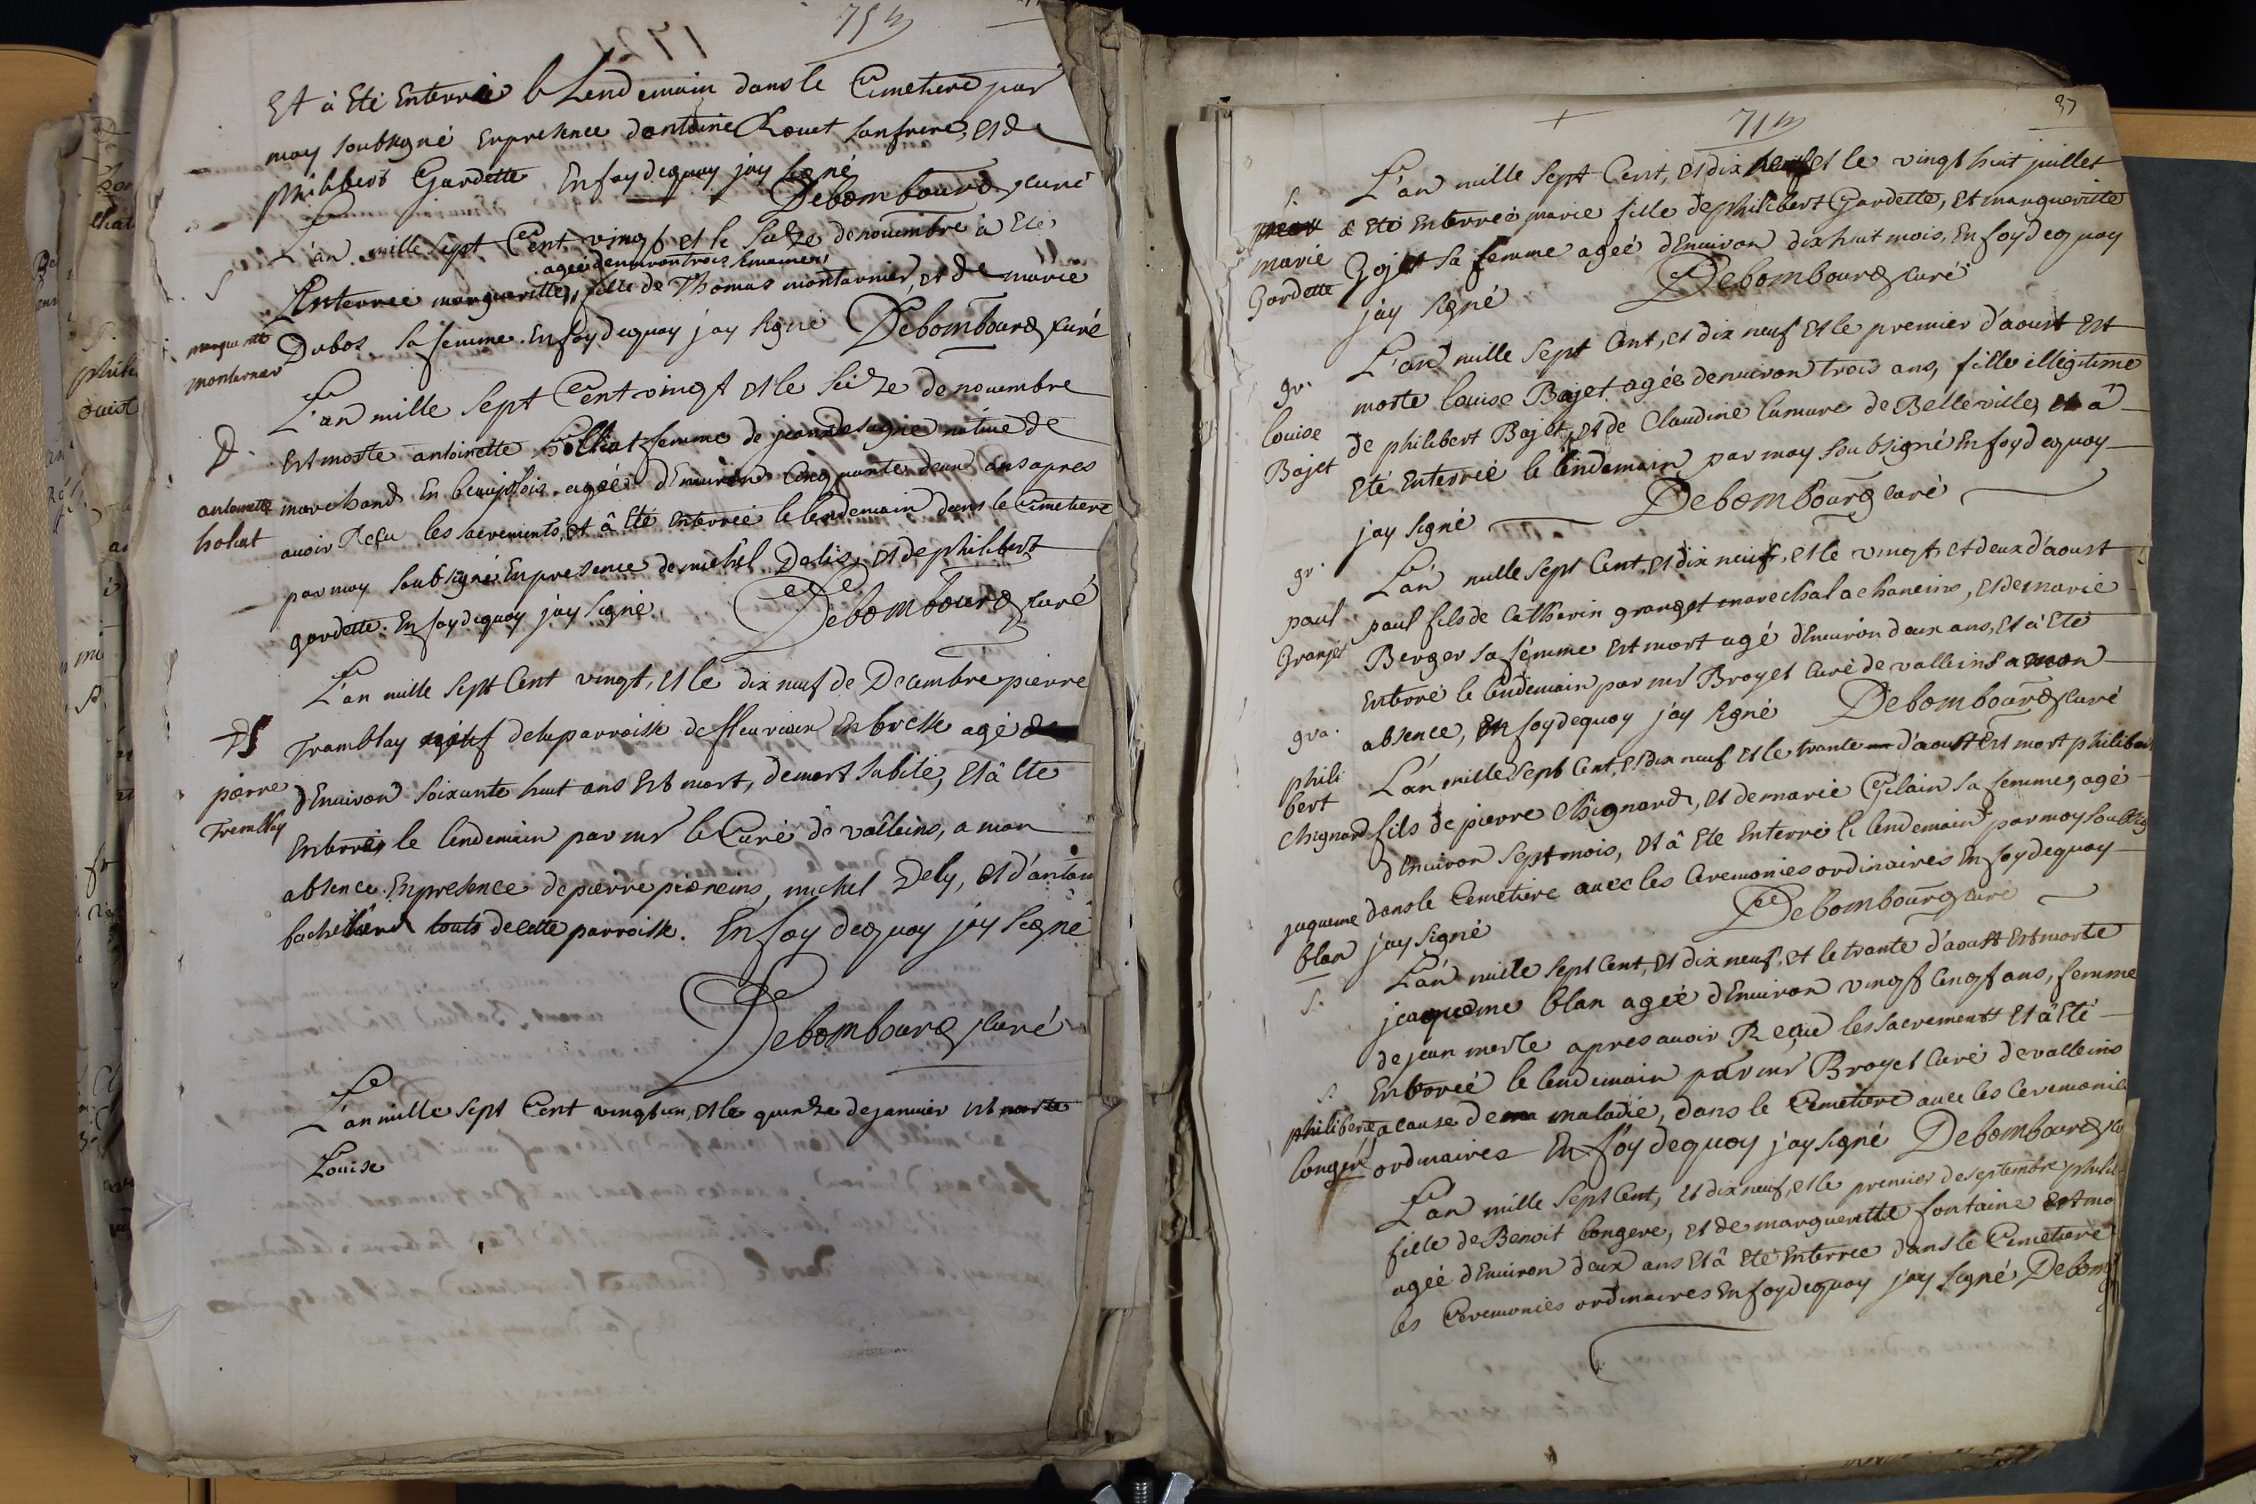 Et à Eté Enterrée le Lendemain dans le Cimetiere par
moy soubsigné Enpresence dantoine Rouet son frere, et de
philibert Gardette En foydequoy jay signé
Debombourg curé
L'an mille sept Cent vingt et le seize denouembre à Eté
agée denuiron trois semaines
Enterrée margueritte, fille de Thomas montarnier, et de marie
Dubos sa femme. En foydequoy jay signé Debombourg curé
S
marguerite
montarnier
L'an mille sept Cent vingt et le seize de nouembre
Est morte antoinette femme de jean natiue de
marchand En beaujollois agée d'Enuiron cinquante deux ans apres
auoir Reçu les sacrements, et à Eté Enterrée le lendemain dans le Cimetiere
par moy soubsigné Enpresence de michel Delis, et de philibert
gardette. En foydequoy jay signé. Debombourg curé
D.
antoinette
L'an mille sept Cent vingt, et le dix neuf de Decembre pierre
Tramblay delaparroisse de fleurieux En bresse agé
d'Enuiron soixante huit ans Est mort, demort subite, et à Eté
Enterré le lendemain par mr le Curé de valleins, a mon
absence. Enpresence depierre pioneins, michel Dely, et d'antoin
touts decette parroisse. En foy dequoy jay signé
Debombourg curé
pierre
Tremblay
L'an mille sept Cent vingtun, et le quinze dejanuier est morte
Louise
37
L'an mille sept Cent, et dix neuf et le vingt huit juillet
à Eté Enterrée marie fille dephilibert Gardette, et marguerite
Gojet sa femme agée d'Enuiron dixhuit mois, En foydequoy
jay signé Debombourg curé
S.
marie
Gardette
L'an mille sept Cent, et dix neuf et le premier d'aoust est
morte louise Bajet agée denuiron trois ans, fille illegitime
de philibert Bajet, et de Claudine lamure de Belleville, et à
Eté Enterrée le lendemain par moy soubsigné En foydequoy
jay signé Debombourg curé
gr.
louise
Bajet
L'an mille sept Cent, et dix neuf, et le vingt, et deux d'aoust
paul fils de Catherin granget marechal a chaneins, et de marie
Berger sa femme est mort agé d'Enuiron deux ans, et à Eté
Enterré le lendemain par mr Broyet curé de valleins a mon
absence, En foydequoy j'ay signé Debombourg curé
gr.
paul
Granjet
L'an mille sept Cent, et dix neuf et le trante d'aoust est mort philibert
fils de pierre Chignard, et de marie Gilain sa femme, agé
d'Enuiron sept mois, et à Eté Enterré le lendemain par moy soubsig
dans le Cemetiere auec les Ceremonies ordinaires En foydequoy
jay signé Debombourg curé
gra.
phili
bert
chignard
L'an mille sept Cent, et dix neuf, et le trante d'aoust est morte
jcaqueme blan agée d'Enuiron vingt cinq ans, femme
de jean merle apres auoir Reçue les sacrements et à Eté
Enterrée le lendemain par mr Broyet curé de valleins
a cause de ma maladie, dans le Cemetiere auec les Ceremonie
ordinaires En foy dequoy j'ay signé Debombourg cu
jaqueme
blan
S.
L'an mille sept Cent, et dix neuf, et le premier de septembre phili
fille de Benoit longere, et de marguerite fontaine est mo
agée d'Enuiron deux ans et à Eté Enterree dans le Cimetiere
les Ceremonies ordinaires En foydequoy j'ay signé, Debom
S.
philiberte
longer